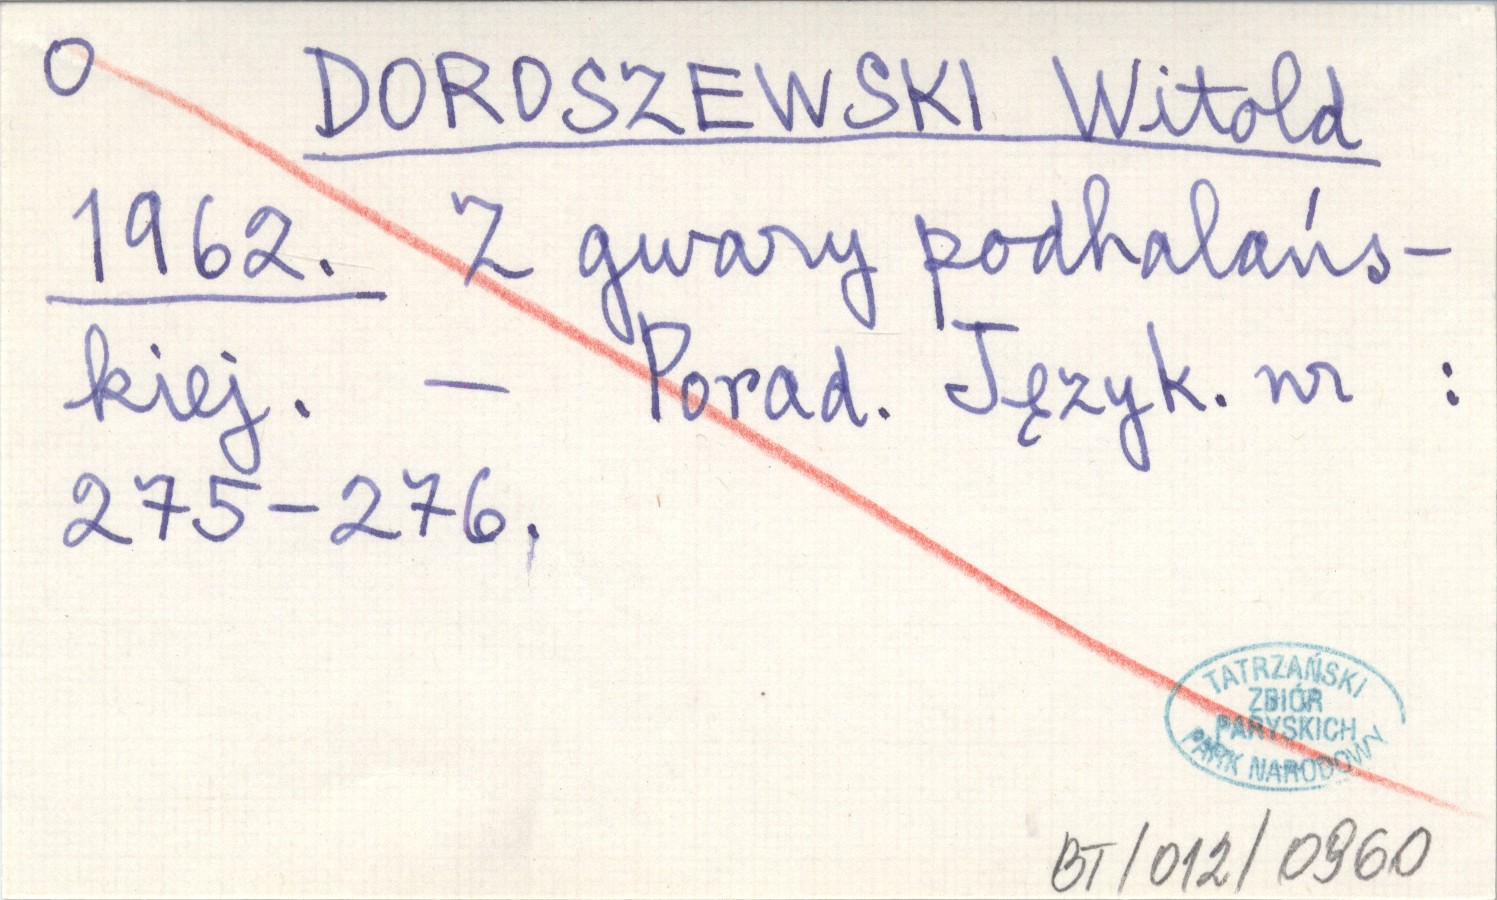 O DOROSZEWSKI Witold
1962. Z gwary podhalańs-
kiej. — Porad. Język. nr :
275-276.
TATRZAŃSKI
ZBIÓR
PARYSKICH
PARK NARODOWY
BT/012/0960